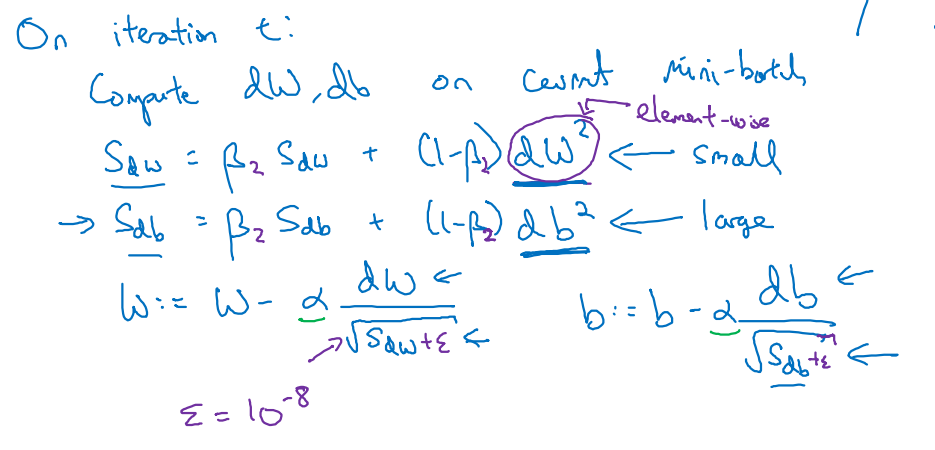 On iteration t:
Compute dW, db on current mini-batch
element-wise
S_dw = β₂ S_dw + (1-β₂) dW² ← small
→ S_db = β₂ S_db + (1-β₂) db² ← large
W := W - α dW / √(S_dw + ε) ←
b := b - α db / √(S_db + ε) ←
ε = 10⁻⁸